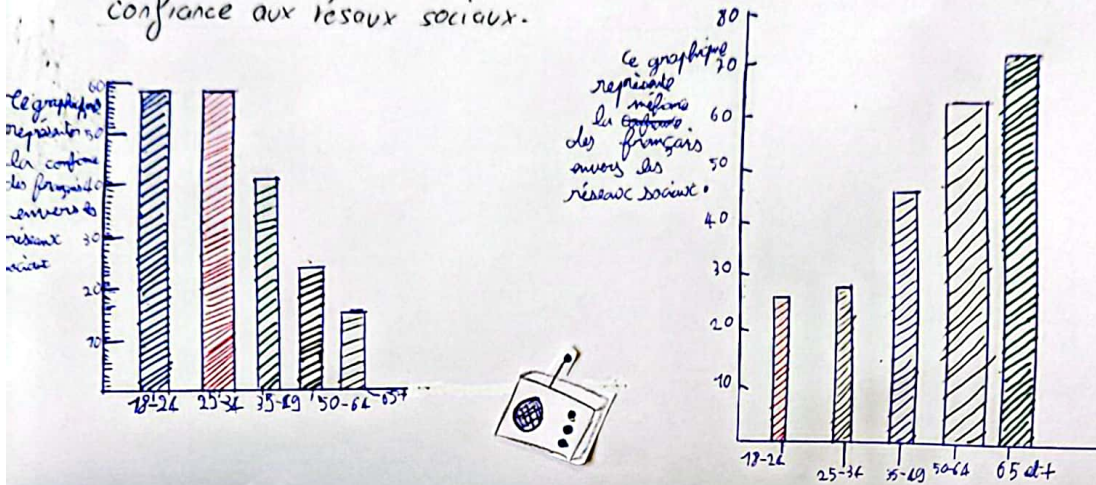 confiance aux résaux sociaux.
Ce graphique
représente
la confiance
des français
envers les
réseaux
60
50
40
30
20
10
18-24
25-34
35-49
50-64
65+
Ce graphique
représente
méfiance
la confiance
des français
envers les
réseaux sociaux.
80
70
60
50
40
30
20
10
18-24
25-34
35-49
50-64
65 et +